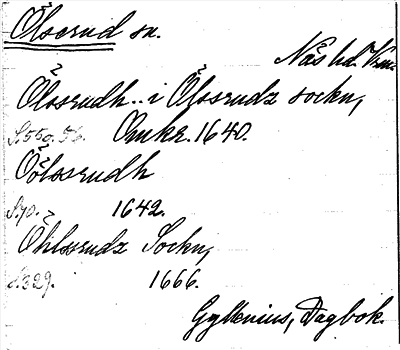 Ölserud sn.
Näs hd. Vrm.
Ölssrudh.. i Ölssrudz sockn,
S.55o.56. Omkr. 1640.
Öölssrudh
S.70. 1642.
Öhlssrudz Sockn,
S.329. 1666.
Gyllenius, Dagbok.